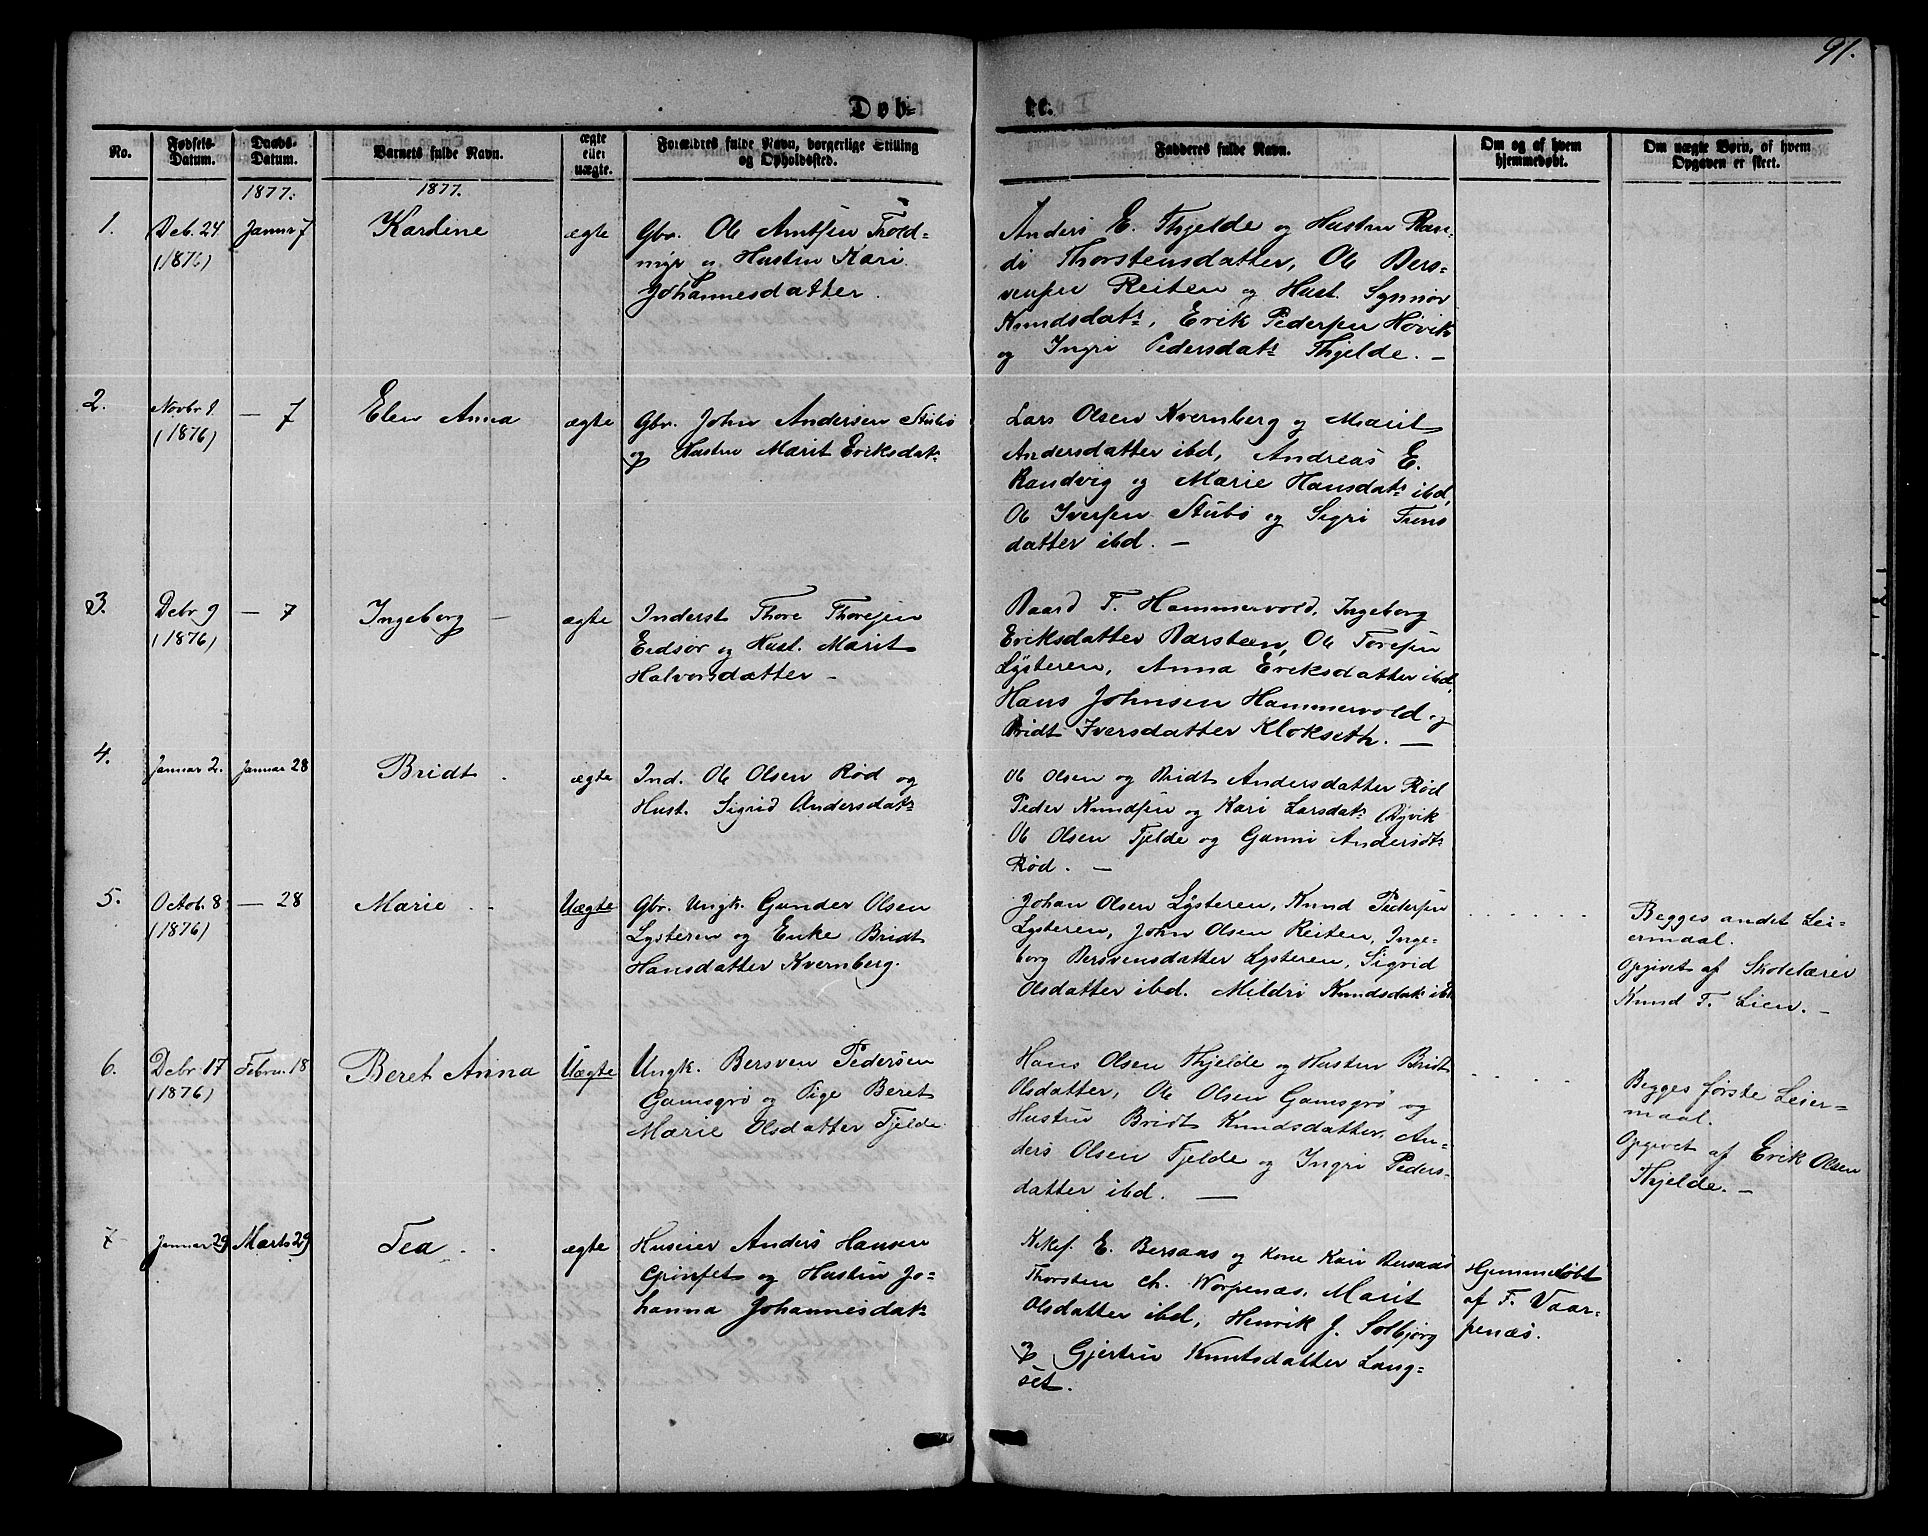 91.
Døb-
te.
No.
Fødsels-
Datum.
Daabs-
Datum.
Barnets fulde Navn.
ægte
eller
uægte.
Forældres fulde Navn, borgerlige Stilling
og Opholdssted.
Fadderes fulde Navn.
Om og af hvem
hjemmedøbt.
Om uægte Børn, af hvem
Opgaven er skeet.
1877.
1877.
1.
Deb. 24
(1876)
Januar 7
Kardine
ægte
Gbr. Ole Arntsen Trold-
myr og Hustru Kari
Johannesdatter.
Anders E. Thjelde og Hustru Ran-
di Thorstensdatter, Ole Bers-
vensen Reiten og Hust. Synnøv
Knudsdatr, Erik Pedersen Høvik
og Ingri Pedersdatr Thjelde. —
2.
Novbr 1.
(1876)
— 7
Elen Anna
ægte
Gbr. John Andersen Stubø
og Hustru Marit Eriksdatr
Lars Olsen Kvernberg og Marit
Andersdatter ibd, Andreas E.
Randvig og Marie Hansdatr ibd,
Ole Iversen Stubø og Sigri Frens
datter ibd. —
3.
Debr 9
(1876)
— 7
Ingeborg —
ægte
Inderst Thore Thoresen
Eidsør og Hust. Marit
Halvorsdatter —
Baard T. Hammervold, Ingeborg
Eriksdatter Barsteen, Ole Toresen
Lysteren, Anna Eriksdatter ibd,
Hans Johnsen Hammervold og
Bridt Iversdatter Klokseth. —
4.
Januar 2.
Januar 28
Bridt
ægte
Ind. Ole Olsen Rød og
Hust. Sigrid Andersdatr
Ole Olsen og Bridt Andersdatter Rød
Peder Knudsen og Kari Larsdatr Dyvik
Ole Olsen Fjelde og Gunni Andersdtr
Rød. —
5.
Octob. 8
(1876)
— 28
Marie
Uægte
Gbr. Ungk. Gunder Olsen
Lysteren og Enke Bridt
Hansdatter Kvernberg.
Johan Olsen Lysteren, Knud Pedersen
Lysteren, John Olsen Reiten, Inge-
borg Bersvensdatter Lysteren, Sigrid
Olsdatter ibd. Meldri Knudsdatr ibd
Begges andet Lei-
ermaal.
Opgivet af Skolelærer
Knud T. Lien. —
6.
Debr 17
(1876)
Februr 18
Beret Anna
Uægte
Ungk. Bersven Pedersen
Gamsgrø og Pige Beret
Marie Olsdatter Fjelde
Hans Olsen Thjelde og Hustru Bridt
Olsdatter, Ole Olsen Gamsgrø og
Hustru Bridt Knudsdatter, An-
ders Olsen Fjelde og Ingri Peders-
datter ibd. —
Begges første Leier-
maal.
Opgivet af Erik Olsen
Thjelde. —
7
Januar 29
Marts 29
Tea
ægte
Huseier Anders Hansen
Grønset og Hustru Jo-
hanna Johannesdatr
Kkes. E. Bersaas og Kone Kari Bersaas
Thorsten Ch. Worpenæs, Marit
Olsdatter ibd, Henrik J. Solbjørg
og Gjertru Knutsdatter Lang-
set.
Hjemmedøbt
af T. Vaar-
penæs.